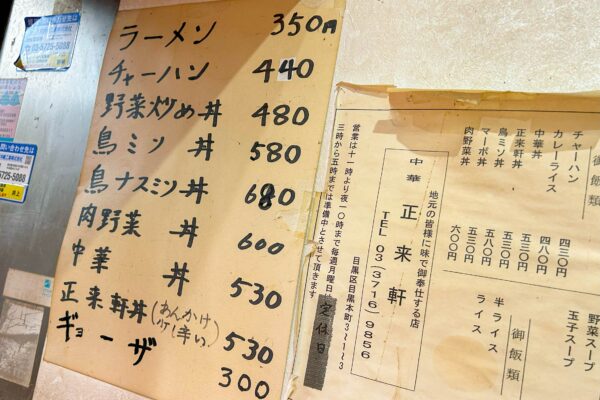 ラーメン 350円
チャーハン 440
野菜炒め丼 480
鳥ミソ丼 580
鳥ナスミソ丼 680
肉野菜丼 600
中華丼 530
正来軒丼(あんかけ 少し辛い) 530
ギョーザ 300
営業は十一時より夜一〇時まで毎週月曜日は定休日
三時から五時までは準備中とさせて頂きます
地元の皆様に味で御奉仕する店
中華 正来軒
目黒区目黒本町3〜1〜3
TEL 03(3716)9856
御飯類
チャーハン 四三〇円
カレーライス
中華丼 四八〇円
正来軒丼 五三〇円
鳥ミソ丼 五三〇円
マーボ丼 五八〇円
肉野菜丼 六〇〇円
御飯類
半ライス
ライス
野菜スープ
玉子スープ
03-5725-5088